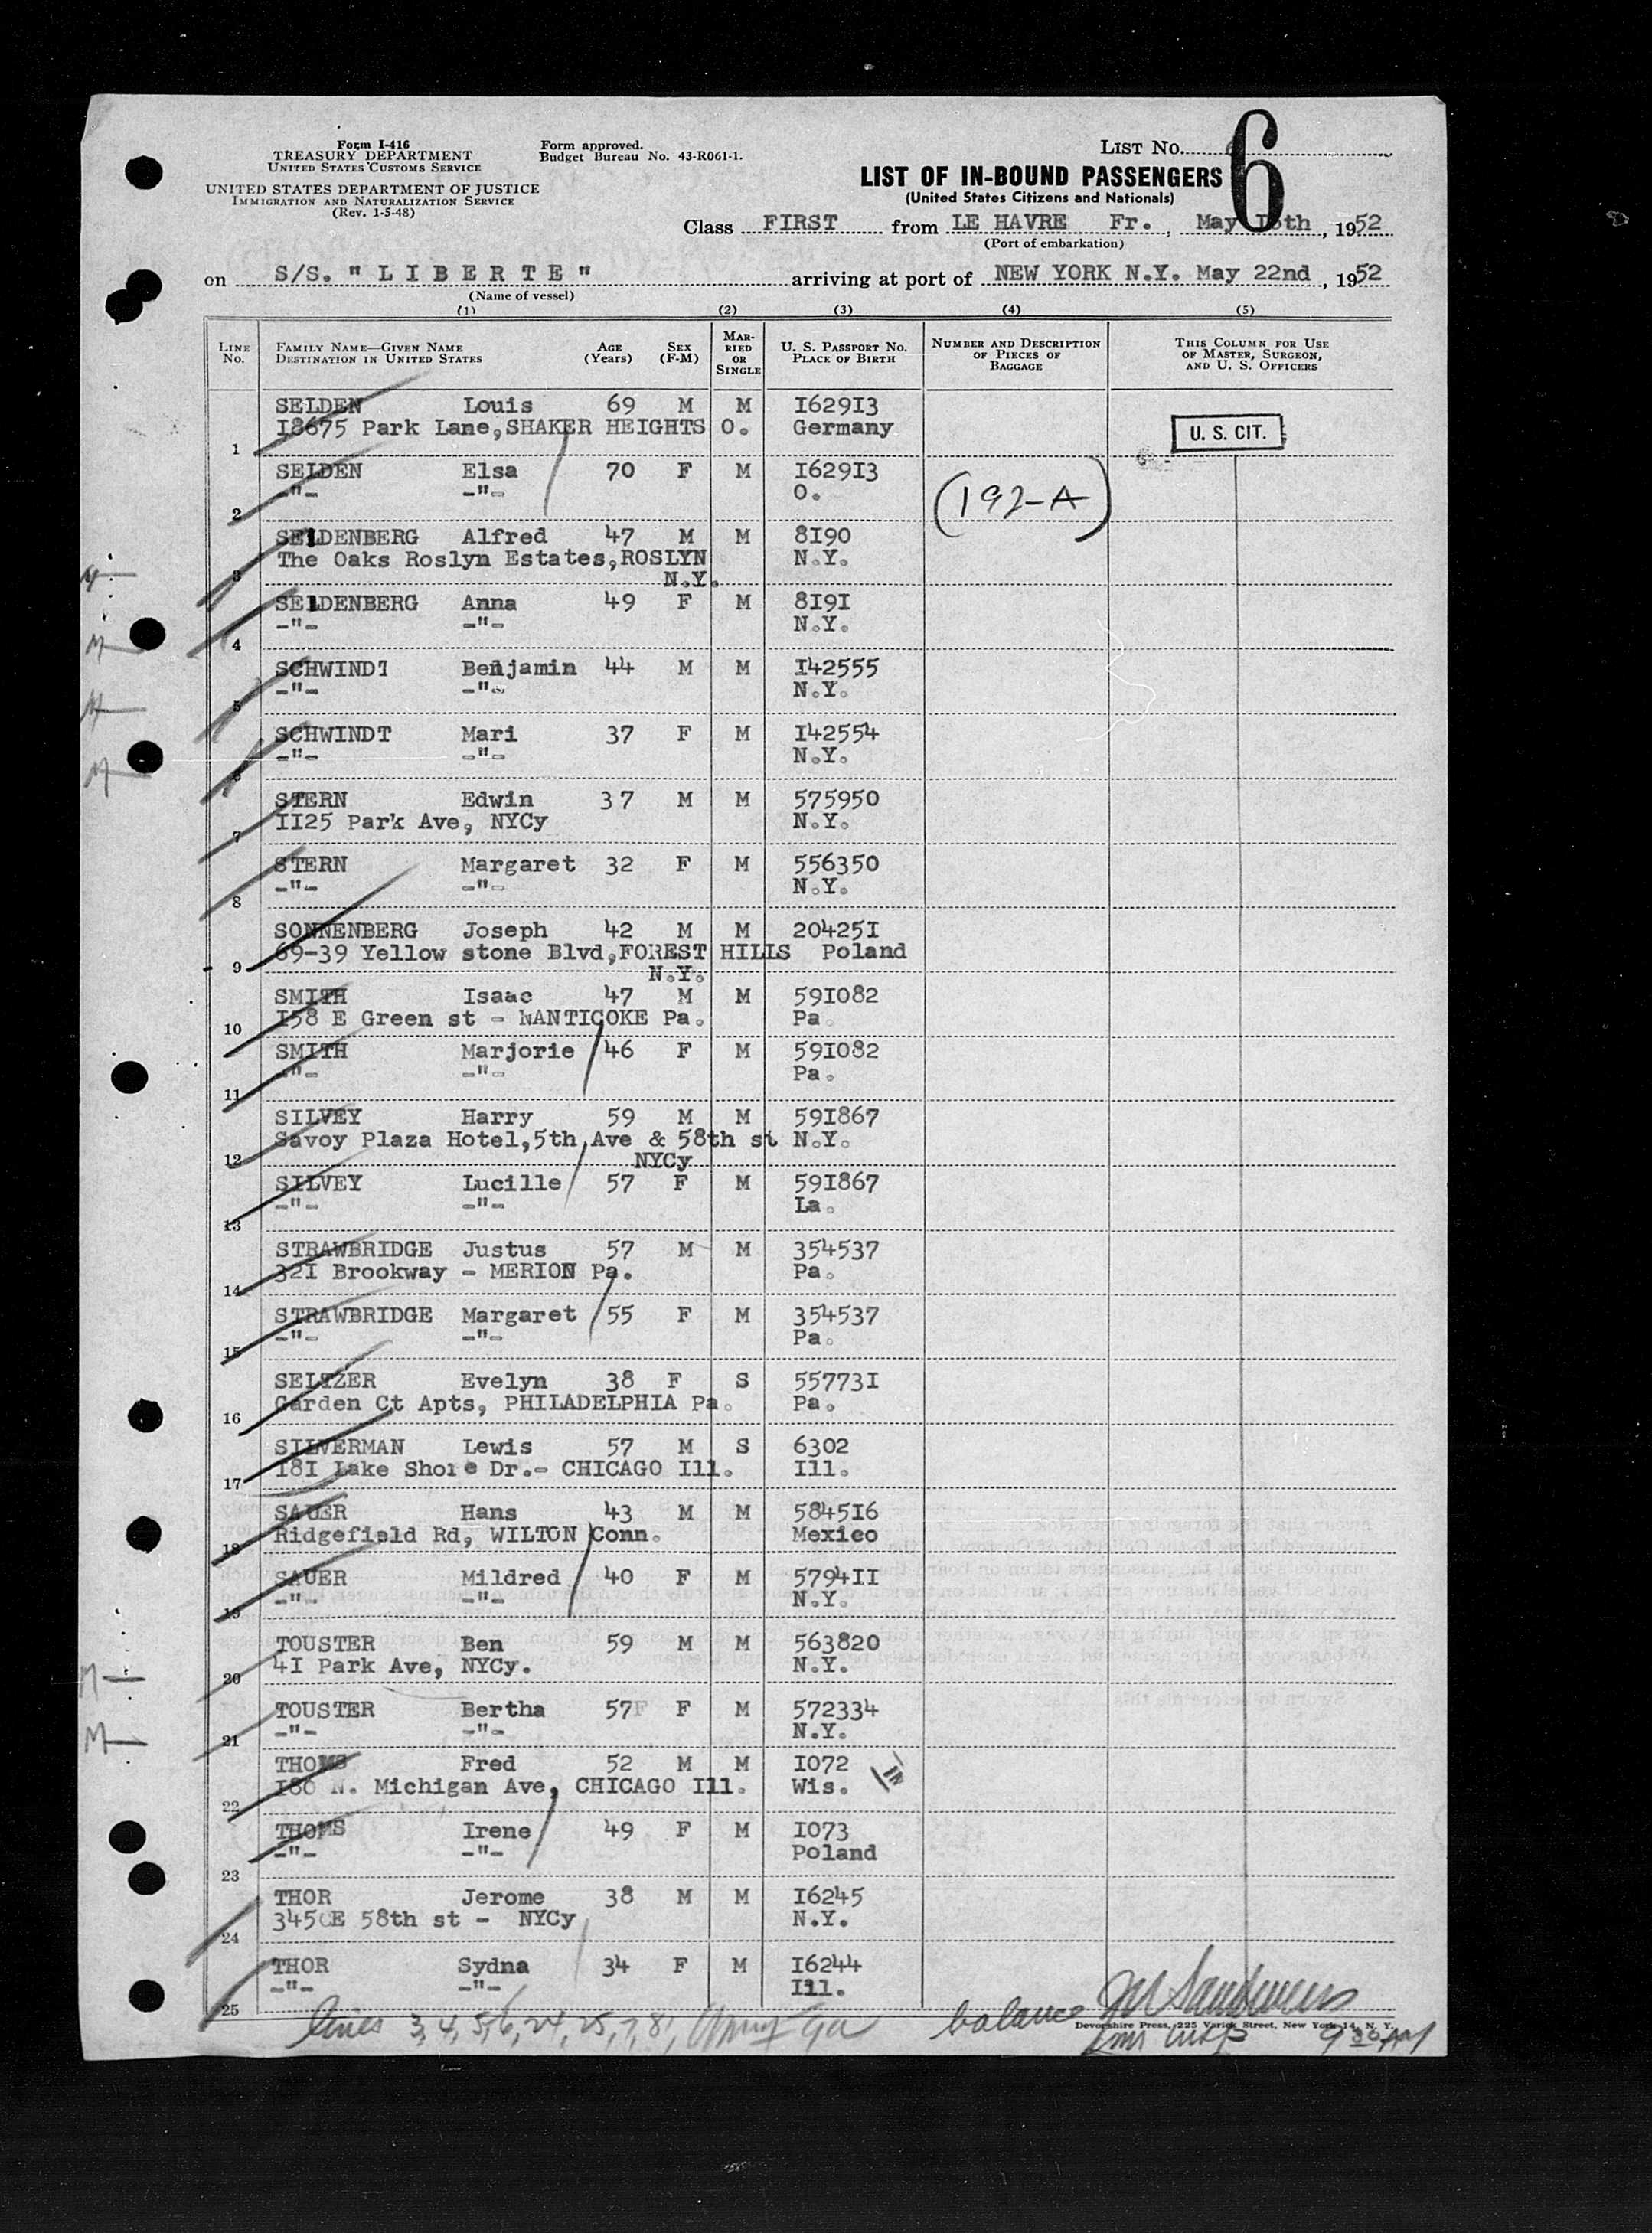 Form I-416
TREASURY DEPARTMENT
UNITED STATES CUSTOMS SERVICE
UNITED STATES DEPARTMENT OF JUSTICE
IMMIGRATION AND NATURALIZATION SERVICE
(Rev. 1-5-48)
Form approved.
Budget Bureau No. 43-R061-1.
LIST No. 6
LIST OF IN-BOUND PASSENGERS
(United States Citizens and Nationals)
Class FIRST from LE HAVRE Fr., May th, 1952
(Port of embarkation)
on S/S. "LIBERTE" arriving at port of NEW YORK N.Y. May 22nd, 1952
(Name of vessel)
(1) (2) (3) (4) (5)
LINE No. FAMILY NAME—GIVEN NAME DESTINATION IN UNITED STATES AGE (Years) SEX (F-M) MARRIED OR SINGLE U. S. PASSPORT NO. PLACE OF BIRTH NUMBER AND DESCRIPTION OF PIECES OF BAGGAGE THIS COLUMN FOR USE OF MASTER, SURGEON, AND U. S. OFFICERS
SELDEN Louis 69 M M I629I3
1 I8675 Park Lane,SHAKER HEIGHTS O. Germany
U. S. CIT.
SELDEN Elsa 70 F M I629I3
2 -"- -"- O.
(192-A)
SELDENBERG Alfred 47 M M 8I90
3 The Oaks Roslyn Estates,ROSLYN N.Y.
N.Y.
SELDENBERG Anna 49 F M 8I9I
4 -"- -"- N.Y.
SCHWINDT Benjamin 44 M M I42555
5 -"- -"- N.Y.
SCHWINDT Mari 37 F M I42554
6 -"- -"- N.Y.
STERN Edwin 37 M M 575950
7 II25 Park Ave, NYCy N.Y.
STERN Margaret 32 F M 556350
8 -"- -"- N.Y.
SONNENBERG Joseph 42 M M 20425I
9 69-39 Yellow stone Blvd,FOREST HILLS Poland
N.Y.
SMITH Isaac 47 M M 59I082
10 I58 E Green st - NANTICOKE Pa. Pa.
SMITH Marjorie 46 F M 59I082
11 -"- -"- Pa.
SILVEY Harry 59 M M 59I867
12 Savoy Plaza Hotel,5th Ave & 58th st N.Y.
NYCy
SILVEY Lucille 57 F M 59I867
13 -"- -"- La.
STRAWBRIDGE Justus 57 M M 354537
14 32I Brookway - MERION Pa. Pa.
STRAWBRIDGE Margaret 55 F M 354537
15 -"- -"- Pa.
SELTZER Evelyn 38 F S 55773I
16 Garden Ct Apts, PHILADELPHIA Pa. Pa.
SILVERMAN Lewis 57 M S 6302
17 I8I Lake Shore Dr.- CHICAGO Ill. Ill.
SAUER Hans 43 M M 5845I6
18 Ridgefield Rd, WILTON Conn. Mexico
SAUER Mildred 40 F M 5794II
19 -"- -"- N.Y.
TOUSTER Ben 59 M M 563820
20 4I Park Ave, NYCy. N.Y.
TOUSTER Bertha 57 F M 572334
21 -"- -"- N.Y.
THOMS Fred 52 M M I072
22 I80 N. Michigan Ave, CHICAGO Ill. Wis.
THOMS Irene 49 F M I073
23 -"- -"- Poland
THOR Jerome 38 M M I6245
24 345 E 58th st - NYCy N.Y.
THOR Sydna 34 F M I6244
25 -"- -"- Ill.
lines 3, 4, 5, 6, 24, 25, 7, 8, balance
Devonshire Press, 225 Varick Street, New York 14, N. Y.
Imm Insp 9 30 AM